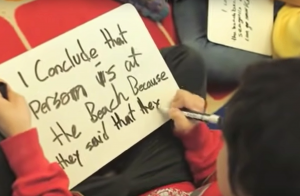 I Conclude that
person is at
the Beach Because
they said that they